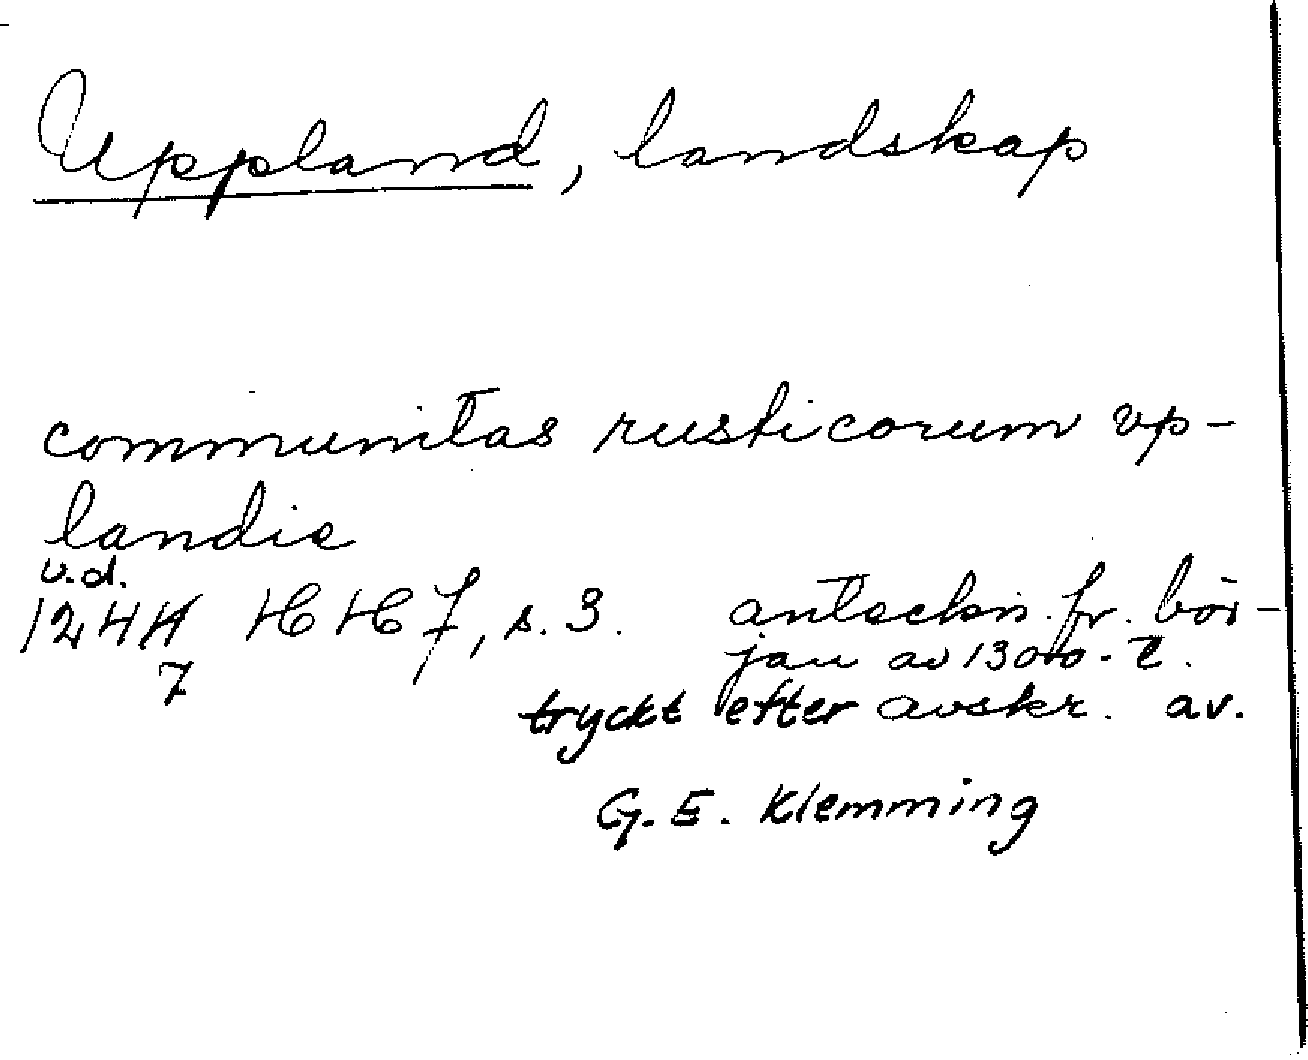 Uppland, landskap
communitas rusticorum vp-
landie
u.d.
1244 HH 7, s. 3. anteckn. fr. bör-
7 jan av 1300-t.
tryckt efter avskr. av.
G. E. Klemming